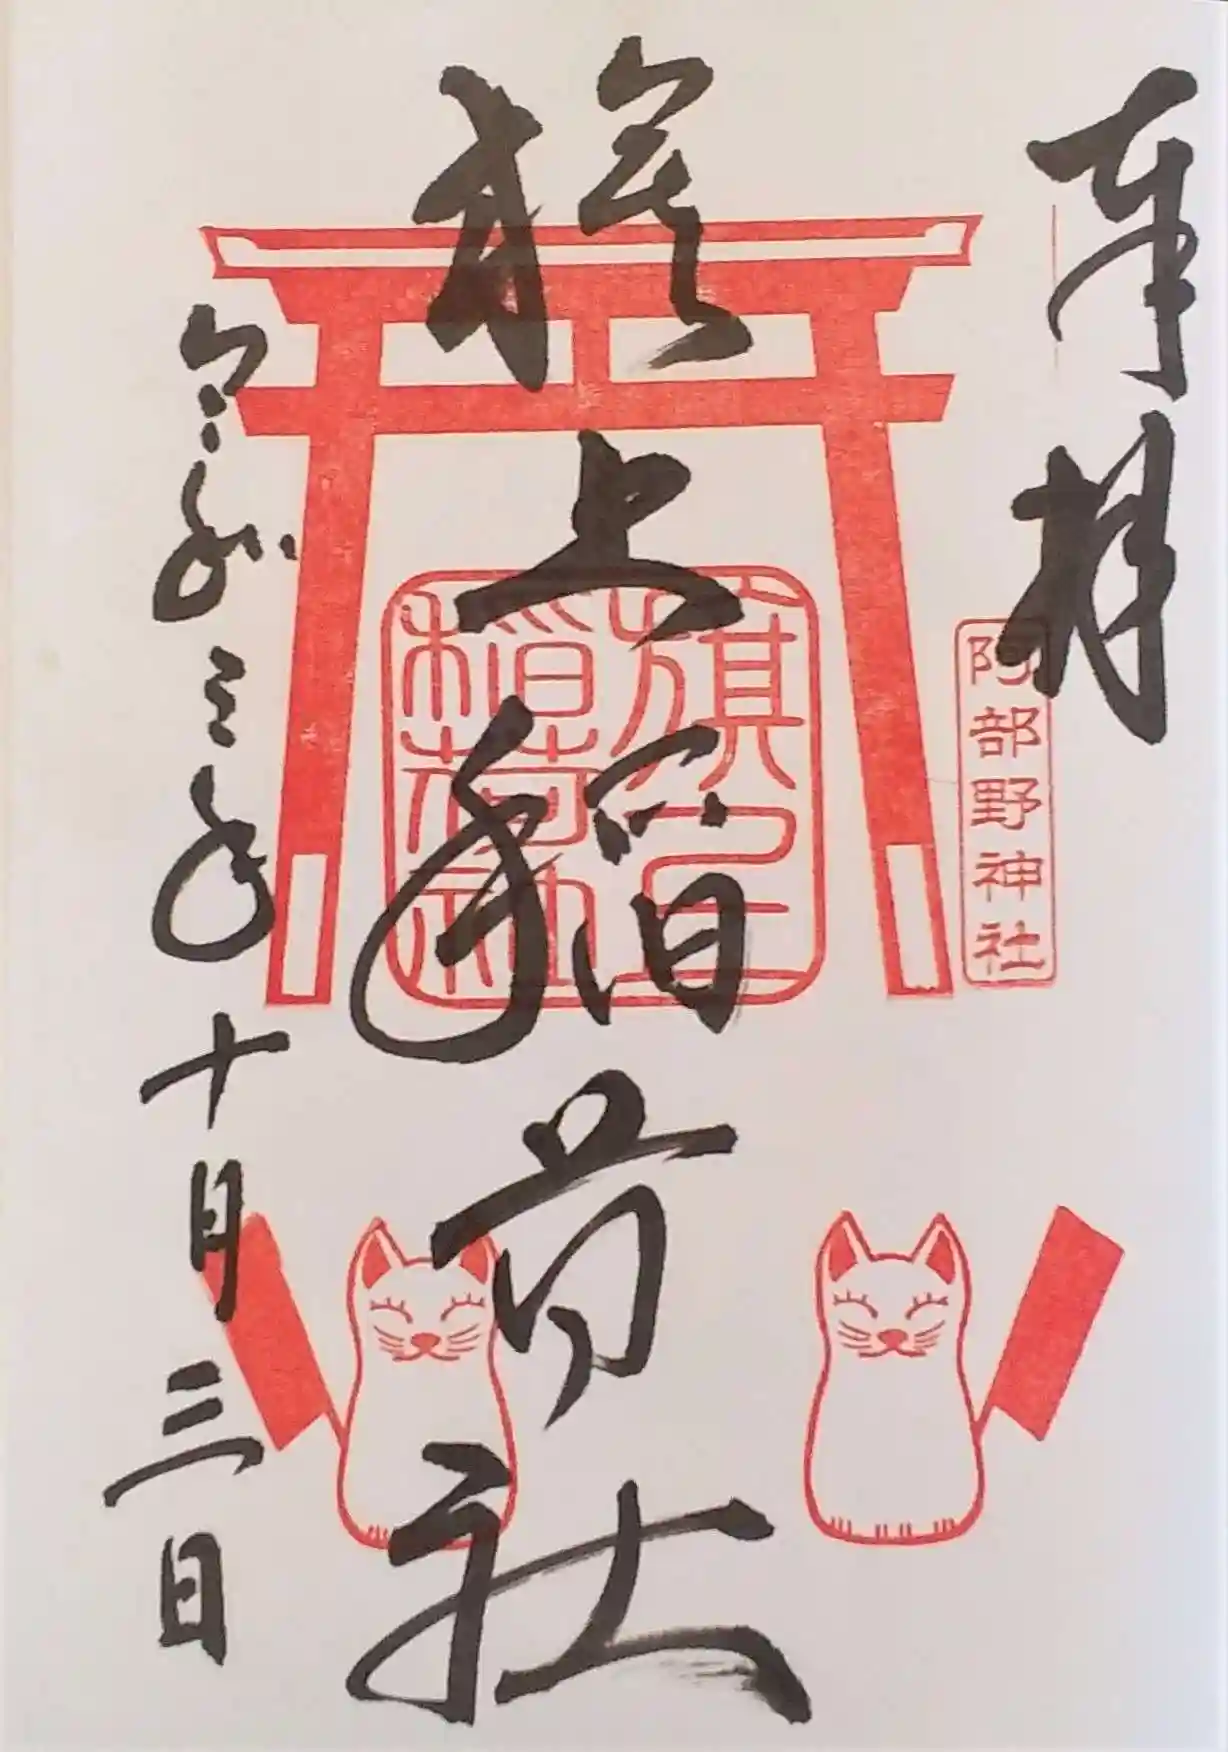 奉拝
阿部野神社
旗上稲荷社
旗上
稲荷社
令和三年十月三日